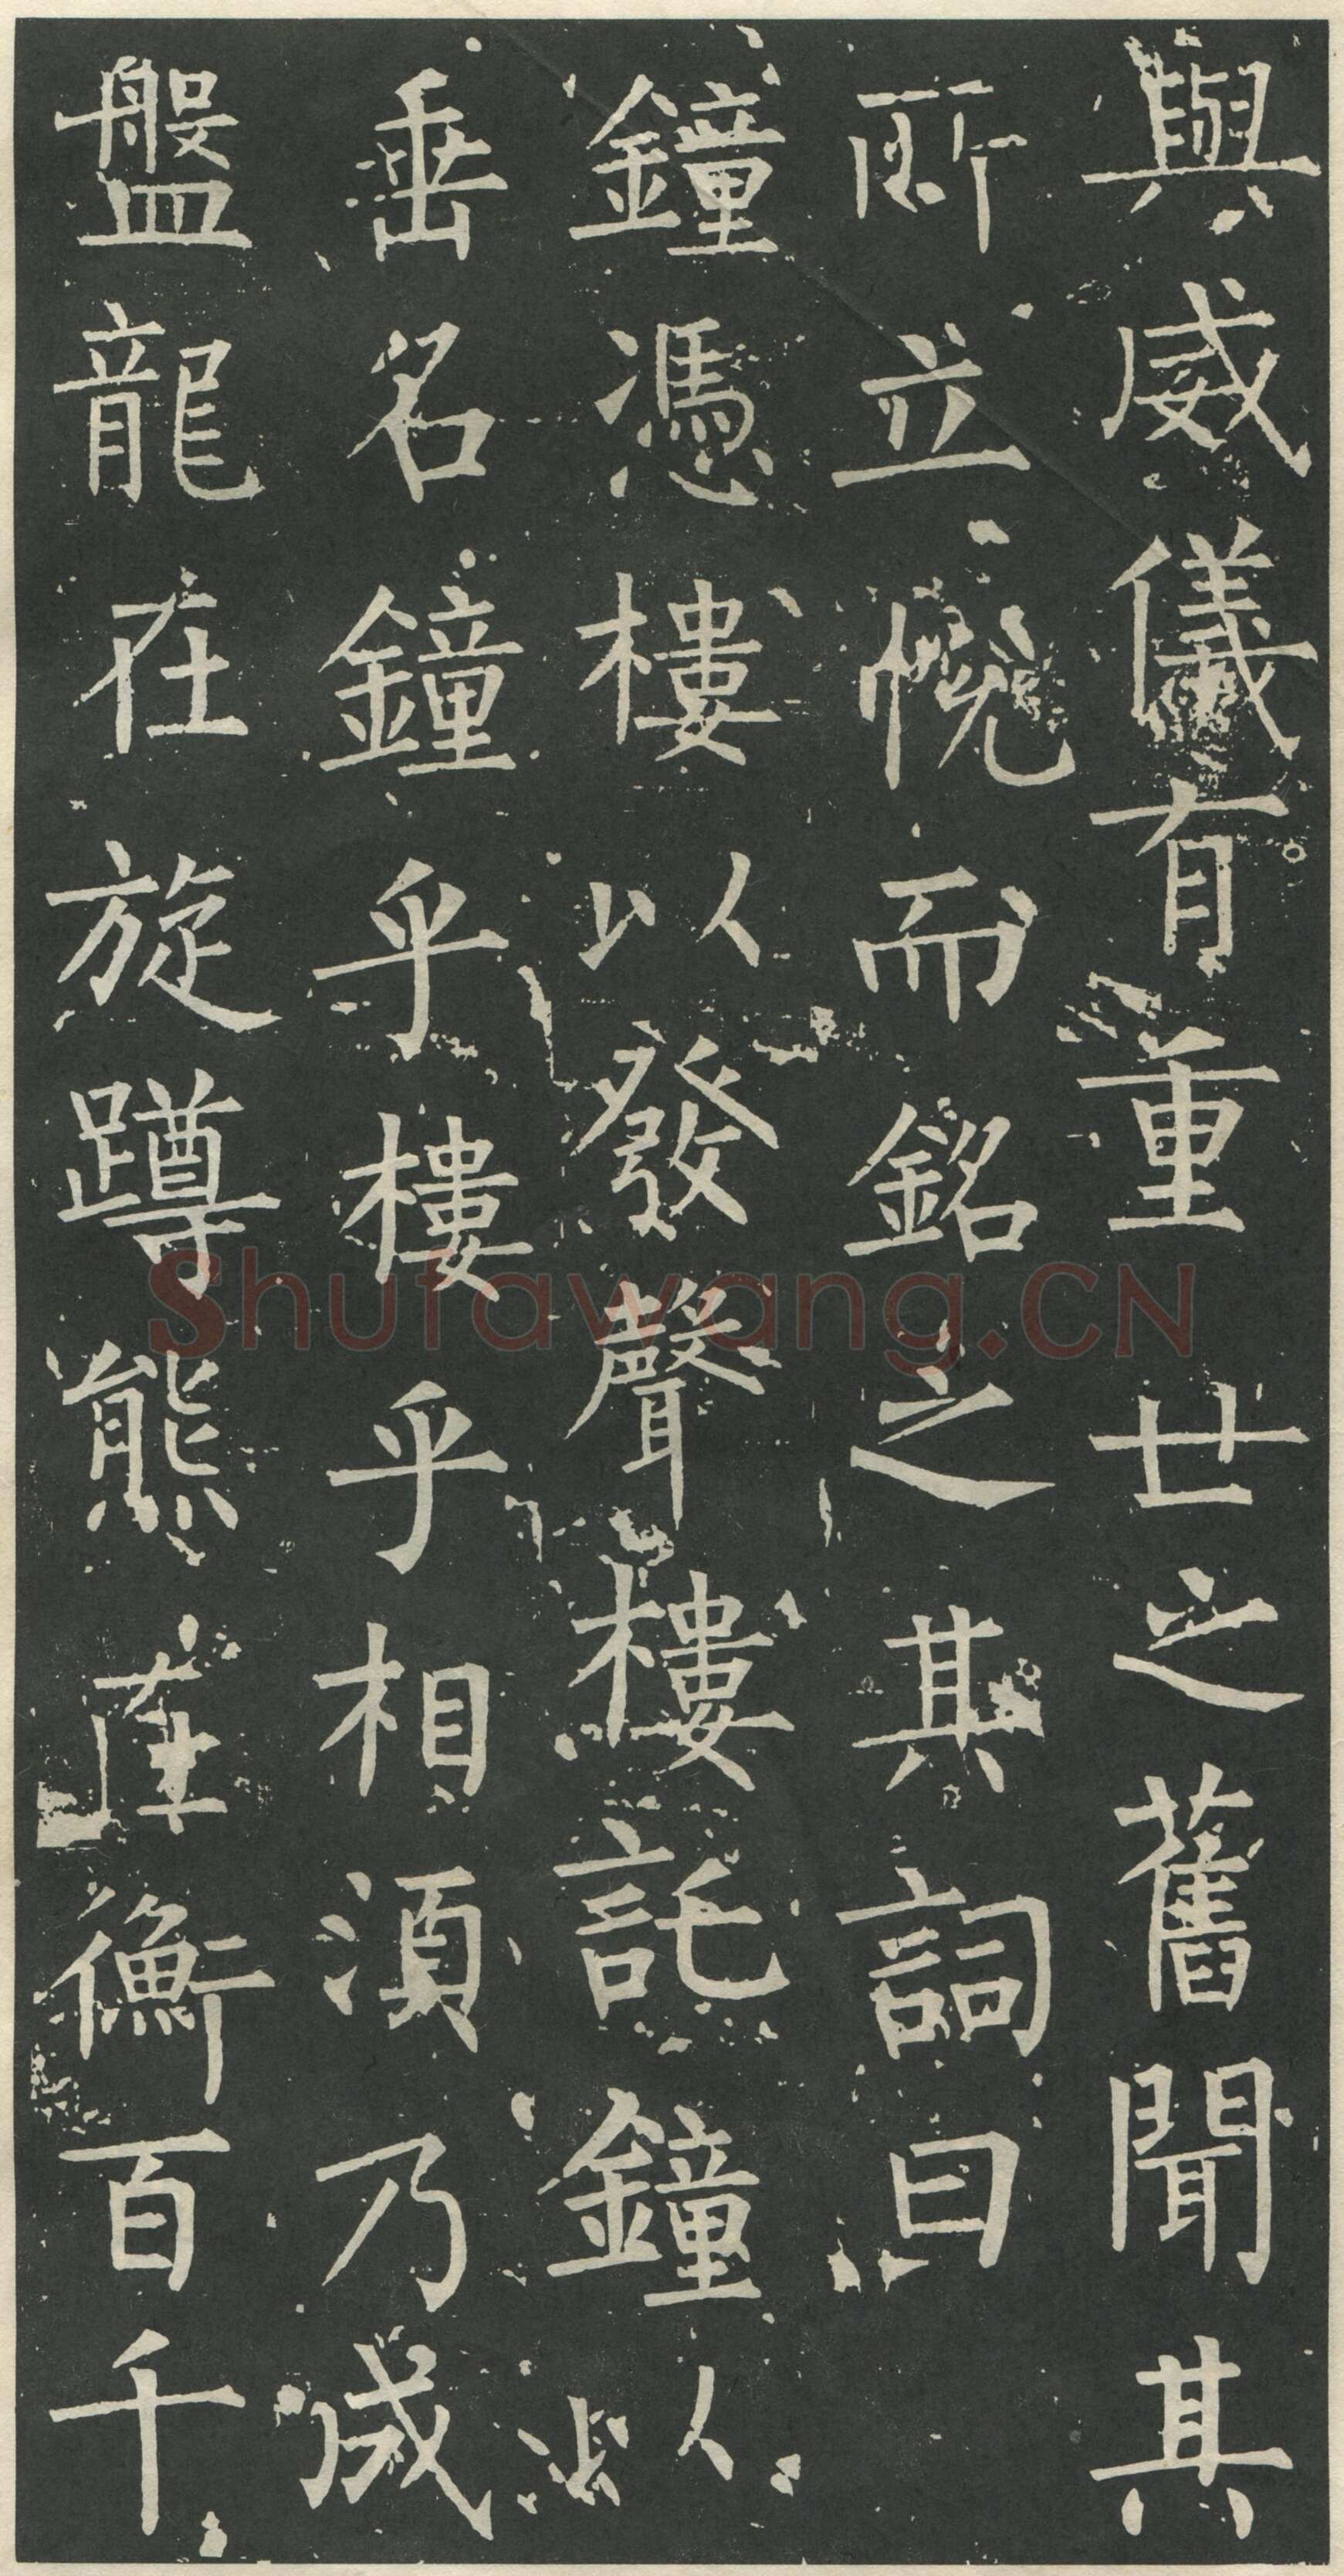 與威儀有重廿之舊聞其
所立悅而銘之其詞曰
鐘憑樓以發聲樓託鐘以
垂名鐘乎樓乎相須乃成
盤龍在旋蹲熊在衡百千
Shufawang.CN